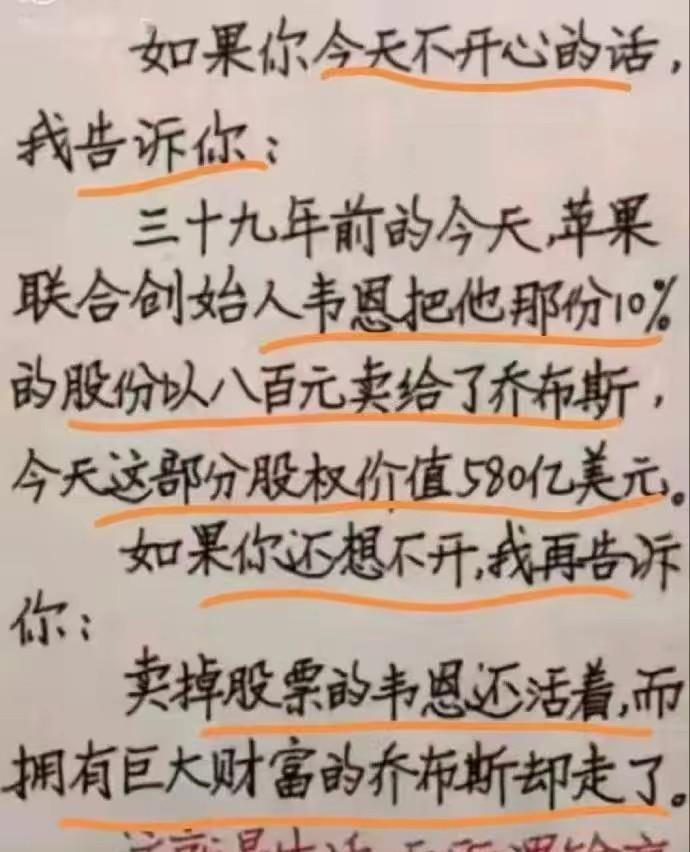 如果你今天不开心的话，
我告诉你：
三十九年前的今天，苹果
联合创始人韦恩把他那份10%
的股份以八百元卖给了乔布斯，
今天这部分股权价值580亿美元。
如果你还想不开，我再告诉
你：
卖掉股票的韦恩还活着，而
拥有巨大财富的乔布斯却走了。